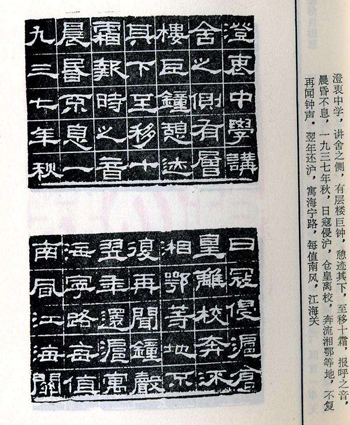 澄衷中学，讲舍之侧，有层楼巨钟，憩迹其下，至移十霜，报呼之音，
晨昏不息，一九三七年秋，日寇侵沪，仓皇离校，奔流湘鄂等地，不复
再闻钟声。翌年还沪，寓海宁路，每值南风，江海关
澄衷中學講
舍之側有層
樓巨鐘憩迹
其下至移十
霜報時之音
晨昏不息一
九三七年秋
日寇侵滬倉
皇離校奔流
湘鄂等地不
復再聞鐘聲
翌年還滬寓
海寧路每值
南風江海關